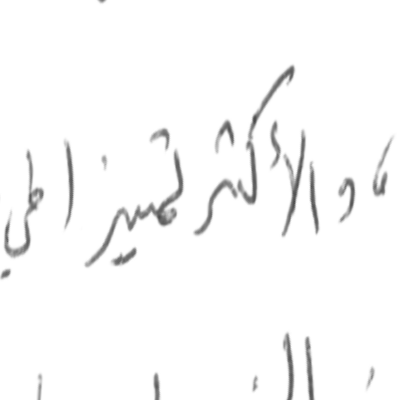 ، والأكثر تميزا طي